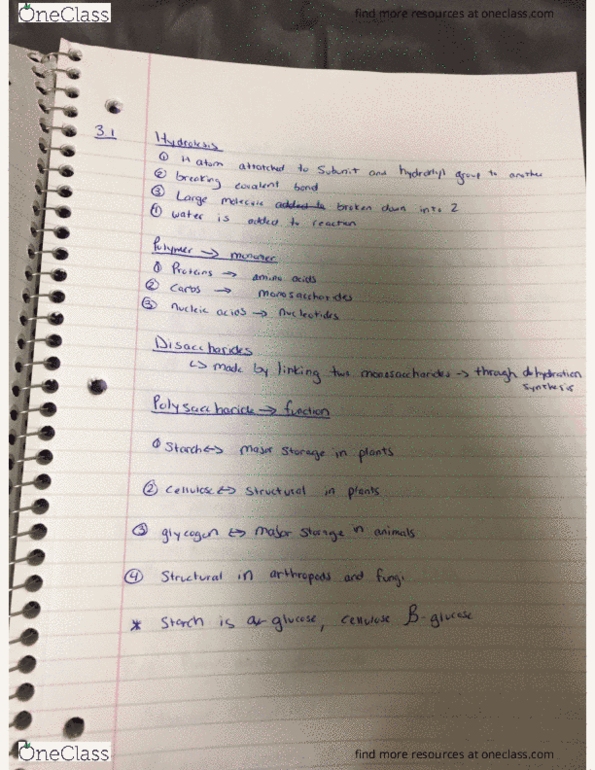 OneClass
find more resources at oneclass.com
3.1
Hydrolesis
① H atom attatched to Subunit and hydroxyl group to another
② breaking covalent bond
③ Large molecule added to broken down into 2
④ water is added to reaction
Polymer → monomer
① Proteins → amino acids
② Carbs → monosaccharides
③ nucleic acids → nucleotides
Disaccharides
↳ made by linking two monosaccharides → through dehydration
synthesis
Polysaccharide → function
① Starch ↔ major storage in plants
② Cellulose ↔ structural in plants
③ glycogen ↔ major storage in animals
④ Structural in arthropods and fungi
* Starch is α-glucose, cellulose β-glucose
OneClass
find more resources at oneclass.com